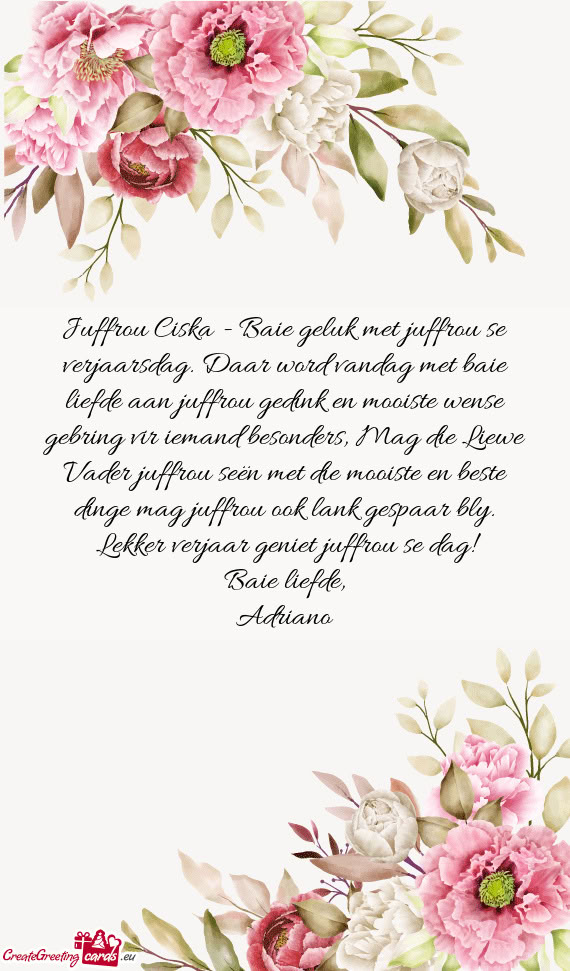 Juffrou Ciska - Baie geluk met juffrou se
verjaarsdag. Daar word vandag met baie
liefde aan juffrou gedink en mooiste wense
gebring vir iemand besonders, Mag die Liewe
Vader juffrou seën met die mooiste en beste
dinge mag juffrou ook lank gespaar bly.
Lekker verjaar geniet juffrou se dag!
Baie liefde,
Adriano
CreateGreeting cards .eu